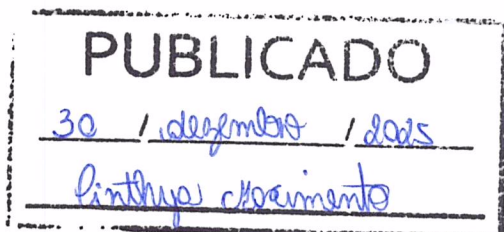 PUBLICADO
30 / dezembro / 2025
Cinthya Nascimento